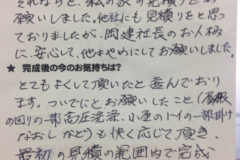 それならと、私の家の見積りをお
願いしました。他社にも見積りをと思っ
ておりましたが、岡建社長のお人柄
に、安心して、他はやめにしてお願いしました。
★ 完成後の今のお気持ちは?
とてもよくして頂いたと喜んでおり
ます。ついでにとお願いしたこと(
の回りの一部高圧洗浄、小屋のトイの一部掛け
なおし など)も快く応じて頂き、
最初の見積の範囲内で完成